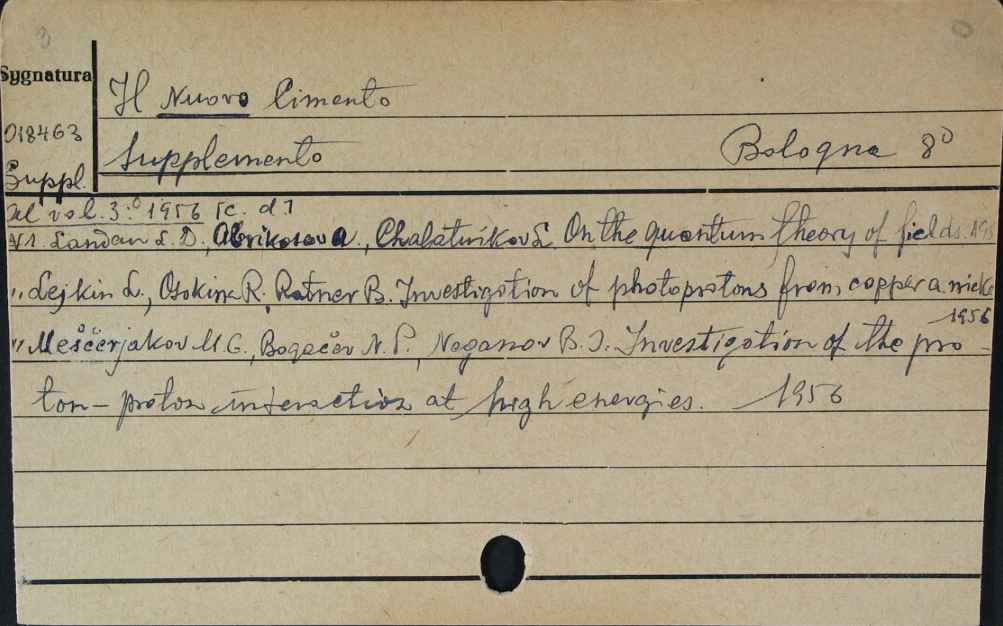 Sygnatura
Il Nuovo Cimento
018463
Supplemento
Bologna 8°
Suppl.
vol. 3:° 1956 [c. d.]
N1. Landau L. D., Abrikosov A., Chalatnikov L. On the quantum theory of fields. 195
„ Lejkin L., Osokina R. Ratner B. Investigation of photoprotons from copper a. nick
1956
„ Meščerjakov M. G., Bogačev N. P., Neganov B. I. Investigation of the pro-
ton-proton interaction at high energies. 1956